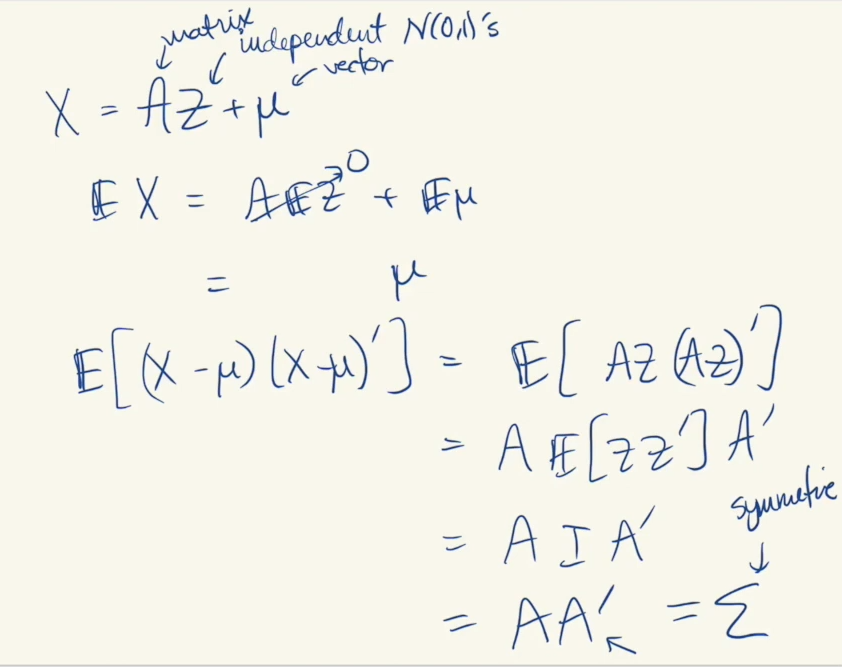 matrix
independent N(0,1)'s
vector
X = AZ + μ
𝔼 X = A𝔼Z 0 + 𝔼μ
= μ
𝔼[(X - μ)(X - μ)'] = 𝔼[ AZ (AZ)']
= A 𝔼[ZZ'] A'
symmetric
= A I A'
= AA' = Σ